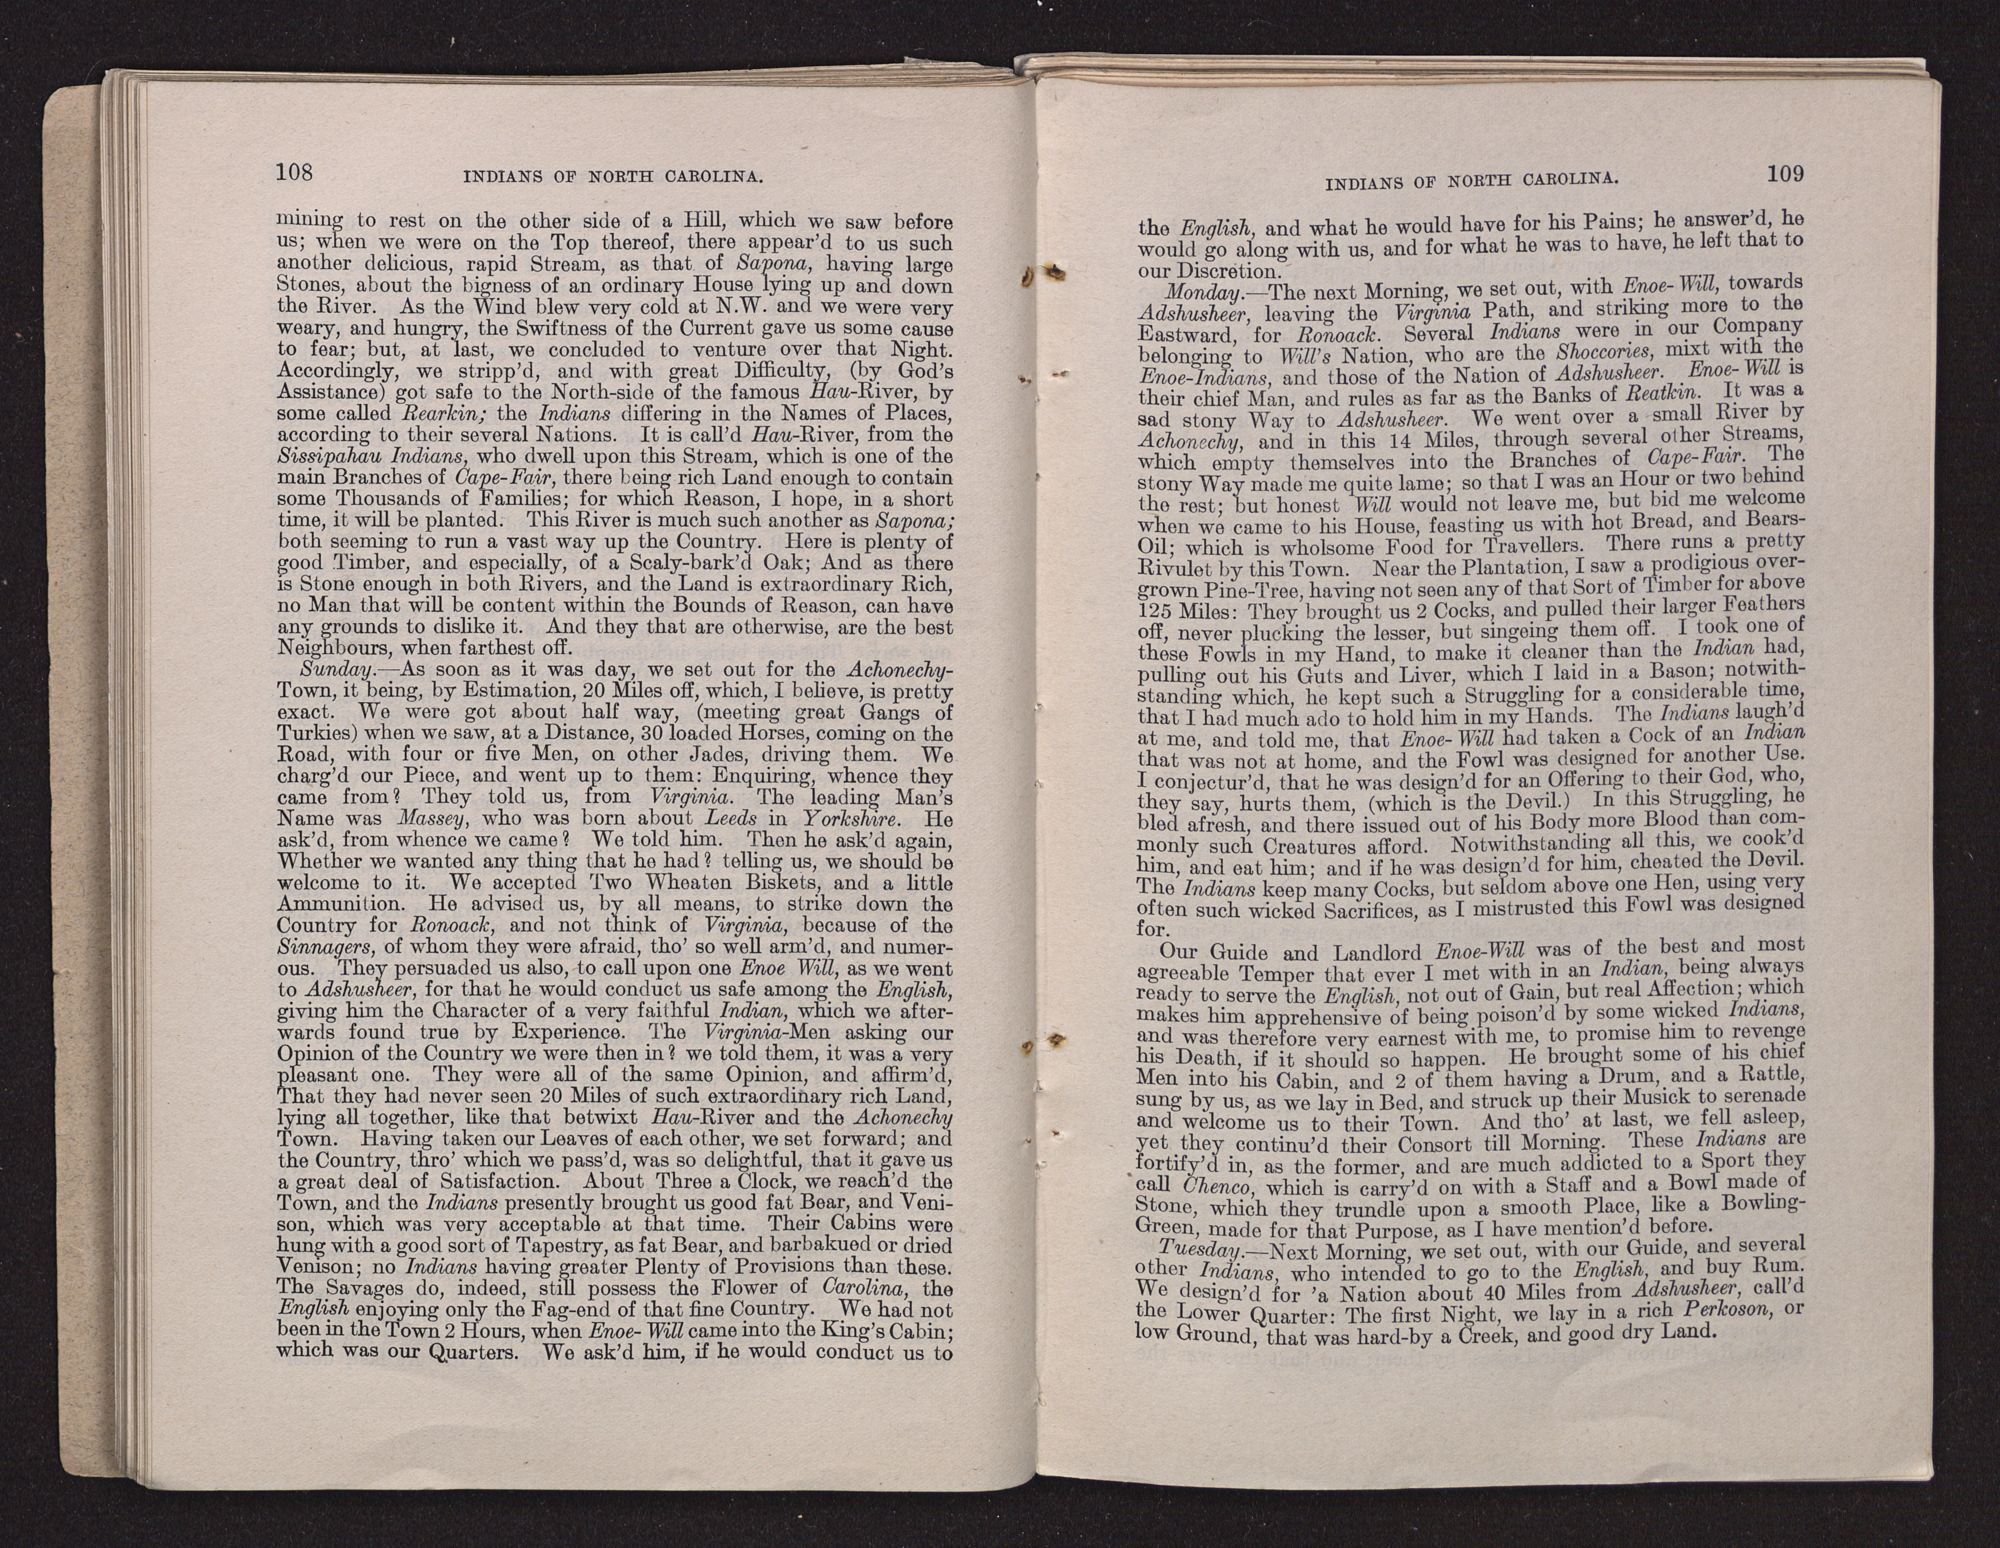 108
INDIANS OF NORTH CAROLINA.
mining to rest on the other side of a Hill, which we saw before
us; when we were on the Top thereof, there appear'd to us such
another delicious, rapid Stream, as that of Sapona, having large
Stones, about the bigness of an ordinary House lying up and down
the River. As the Wind blew very cold at N.W. and we were very
weary, and hungry, the Swiftness of the Current gave us some cause
to fear; but, at last, we concluded to venture over that Night.
Accordingly, we stripp'd, and with great Difficulty, (by God's
Assistance) got safe to the North-side of the famous Hau-River, by
some called Rearkin; the Indians differing in the Names of Places,
according to their several Nations. It is call'd Hau-River, from the
Sissipahau Indians, who dwell upon this Stream, which is one of the
main Branches of Cape-Fair, there being rich Land enough to contain
some Thousands of Families; for which Reason, I hope, in a short
time, it will be planted. This River is much such another as Sapona;
both seeming to run a vast way up the Country. Here is plenty of
good Timber, and especially, of a Scaly-bark'd Oak; And as there
is Stone enough in both Rivers, and the Land is extraordinary Rich,
no Man that will be content within the Bounds of Reason, can have
any grounds to dislike it. And they that are otherwise, are the best
Neighbours, when farthest off.
Sunday.—As soon as it was day, we set out for the Achonechy-
Town, it being, by Estimation, 20 Miles off, which, I believe, is pretty
exact. We were got about half way, (meeting great Gangs of
Turkies) when we saw, at a Distance, 30 loaded Horses, coming on the
Road, with four or five Men, on other Jades, driving them. We
charg'd our Piece, and went up to them: Enquiring, whence they
came from? They told us, from Virginia. The leading Man's
Name was Massey, who was born about Leeds in Yorkshire. He
ask'd, from whence we came? We told him. Then he ask'd again,
Whether we wanted any thing that he had? telling us, we should be
welcome to it. We accepted Two Wheaten Biskets, and a little
Ammunition. He advised us, by all means, to strike down the
Country for Ronoack, and not think of Virginia, because of the
Sinnagers, of whom they were afraid, tho' so well arm'd, and numer-
ous. They persuaded us also, to call upon one Enoe Will, as we went
to Adshusheer, for that he would conduct us safe among the English,
giving him the Character of a very faithful Indian, which we after-
wards found true by Experience. The Virginia-Men asking our
Opinion of the Country we were then in? we told them, it was a very
pleasant one. They were all of the same Opinion, and affirm'd,
That they had never seen 20 Miles of such extraordinary rich Land,
lying all together, like that betwixt Hau-River and the Achonechy
Town. Having taken our Leaves of each other, we set forward; and
the Country, thro' which we pass'd, was so delightful, that it gave us
a great deal of Satisfaction. About Three a Clock, we reach'd the
Town, and the Indians presently brought us good fat Bear, and Veni-
son, which was very acceptable at that time. Their Cabins were
hung with a good sort of Tapestry, as fat Bear, and barbakued or dried
Venison; no Indians having greater Plenty of Provisions than these.
The Savages do, indeed, still possess the Flower of Carolina, the
English enjoying only the Fag-end of that fine Country. We had not
been in the Town 2 Hours, when Enoe-Will came into the King's Cabin;
which was our Quarters. We ask'd him, if he would conduct us to
INDIANS OF NORTH CAROLINA.
109
the English, and what he would have for his Pains; he answer'd, he
would go along with us, and for what he was to have, he left that to
our Discretion.
Monday.—The next Morning, we set out, with Enoe-Will, towards
Adshusheer, leaving the Virginia Path, and striking more to the
Eastward, for Ronoack. Several Indians were in our Company
belonging to Will's Nation, who are the Shoccories, mixt with the
Enoe-Indians, and those of the Nation of Adshusheer. Enoe-Will is
their chief Man, and rules as far as the Banks of Reatkin. It was a
sad stony Way to Adshusheer. We went over a small River by
Achonechy, and in this 14 Miles, through several other Streams,
which empty themselves into the Branches of Cape-Fair. The
stony Way made me quite lame; so that I was an Hour or two behind
the rest; but honest Will would not leave me, but bid me welcome
when we came to his House, feasting us with hot Bread, and Bears-
Oil; which is wholsome Food for Travellers. There runs a pretty
Rivulet by this Town. Near the Plantation, I saw a prodigious over-
grown Pine-Tree, having not seen any of that Sort of Timber for above
125 Miles: They brought us 2 Cocks, and pulled their larger Feathers
off, never plucking the lesser, but singeing them off. I took one of
these Fowls in my Hand, to make it cleaner than the Indian had,
pulling out his Guts and Liver, which I laid in a Bason; notwith-
standing which, he kept such a Struggling for a considerable time,
that I had much ado to hold him in my Hands. The Indians laugh'd
at me, and told me, that Enoe-Will had taken a Cock of an Indian
that was not at home, and the Fowl was designed for another Use.
I conjectur'd, that he was design'd for an Offering to their God, who,
they say, hurts them, (which is the Devil.) In this Struggling, he
bled afresh, and there issued out of his Body more Blood than com-
monly such Creatures afford. Notwithstanding all this, we cook'd
him, and eat him; and if he was design'd for him, cheated the Devil.
The Indians keep many Cocks, but seldom above one Hen, using very
often such wicked Sacrifices, as I mistrusted this Fowl was designed
for.
Our Guide and Landlord Enoe-Will was of the best and most
agreeable Temper that ever I met with in an Indian, being always
ready to serve the English, not out of Gain, but real Affection; which
makes him apprehensive of being poison'd by some wicked Indians,
and was therefore very earnest with me, to promise him to revenge
his Death, if it should so happen. He brought some of his chief
Men into his Cabin, and 2 of them having a Drum, and a Rattle,
sung by us, as we lay in Bed, and struck up their Musick to serenade
and welcome us to their Town. And tho' at last, we fell asleep,
yet they continu'd their Consort till Morning. These Indians are
fortify'd in, as the former, and are much addicted to a Sport they
call Chenco, which is carry'd on with a Staff and a Bowl made of
Stone, which they trundle upon a smooth Place, like a Bowling-
Green, made for that Purpose, as I have mention'd before.
Tuesday.—Next Morning, we set out, with our Guide, and several
other Indians, who intended to go to the English, and buy Rum.
We design'd for 'a Nation about 40 Miles from Adshusheer, call'd
the Lower Quarter: The first Night, we lay in a rich Perkoson, or
low Ground, that was hard-by a Creek, and good dry Land.